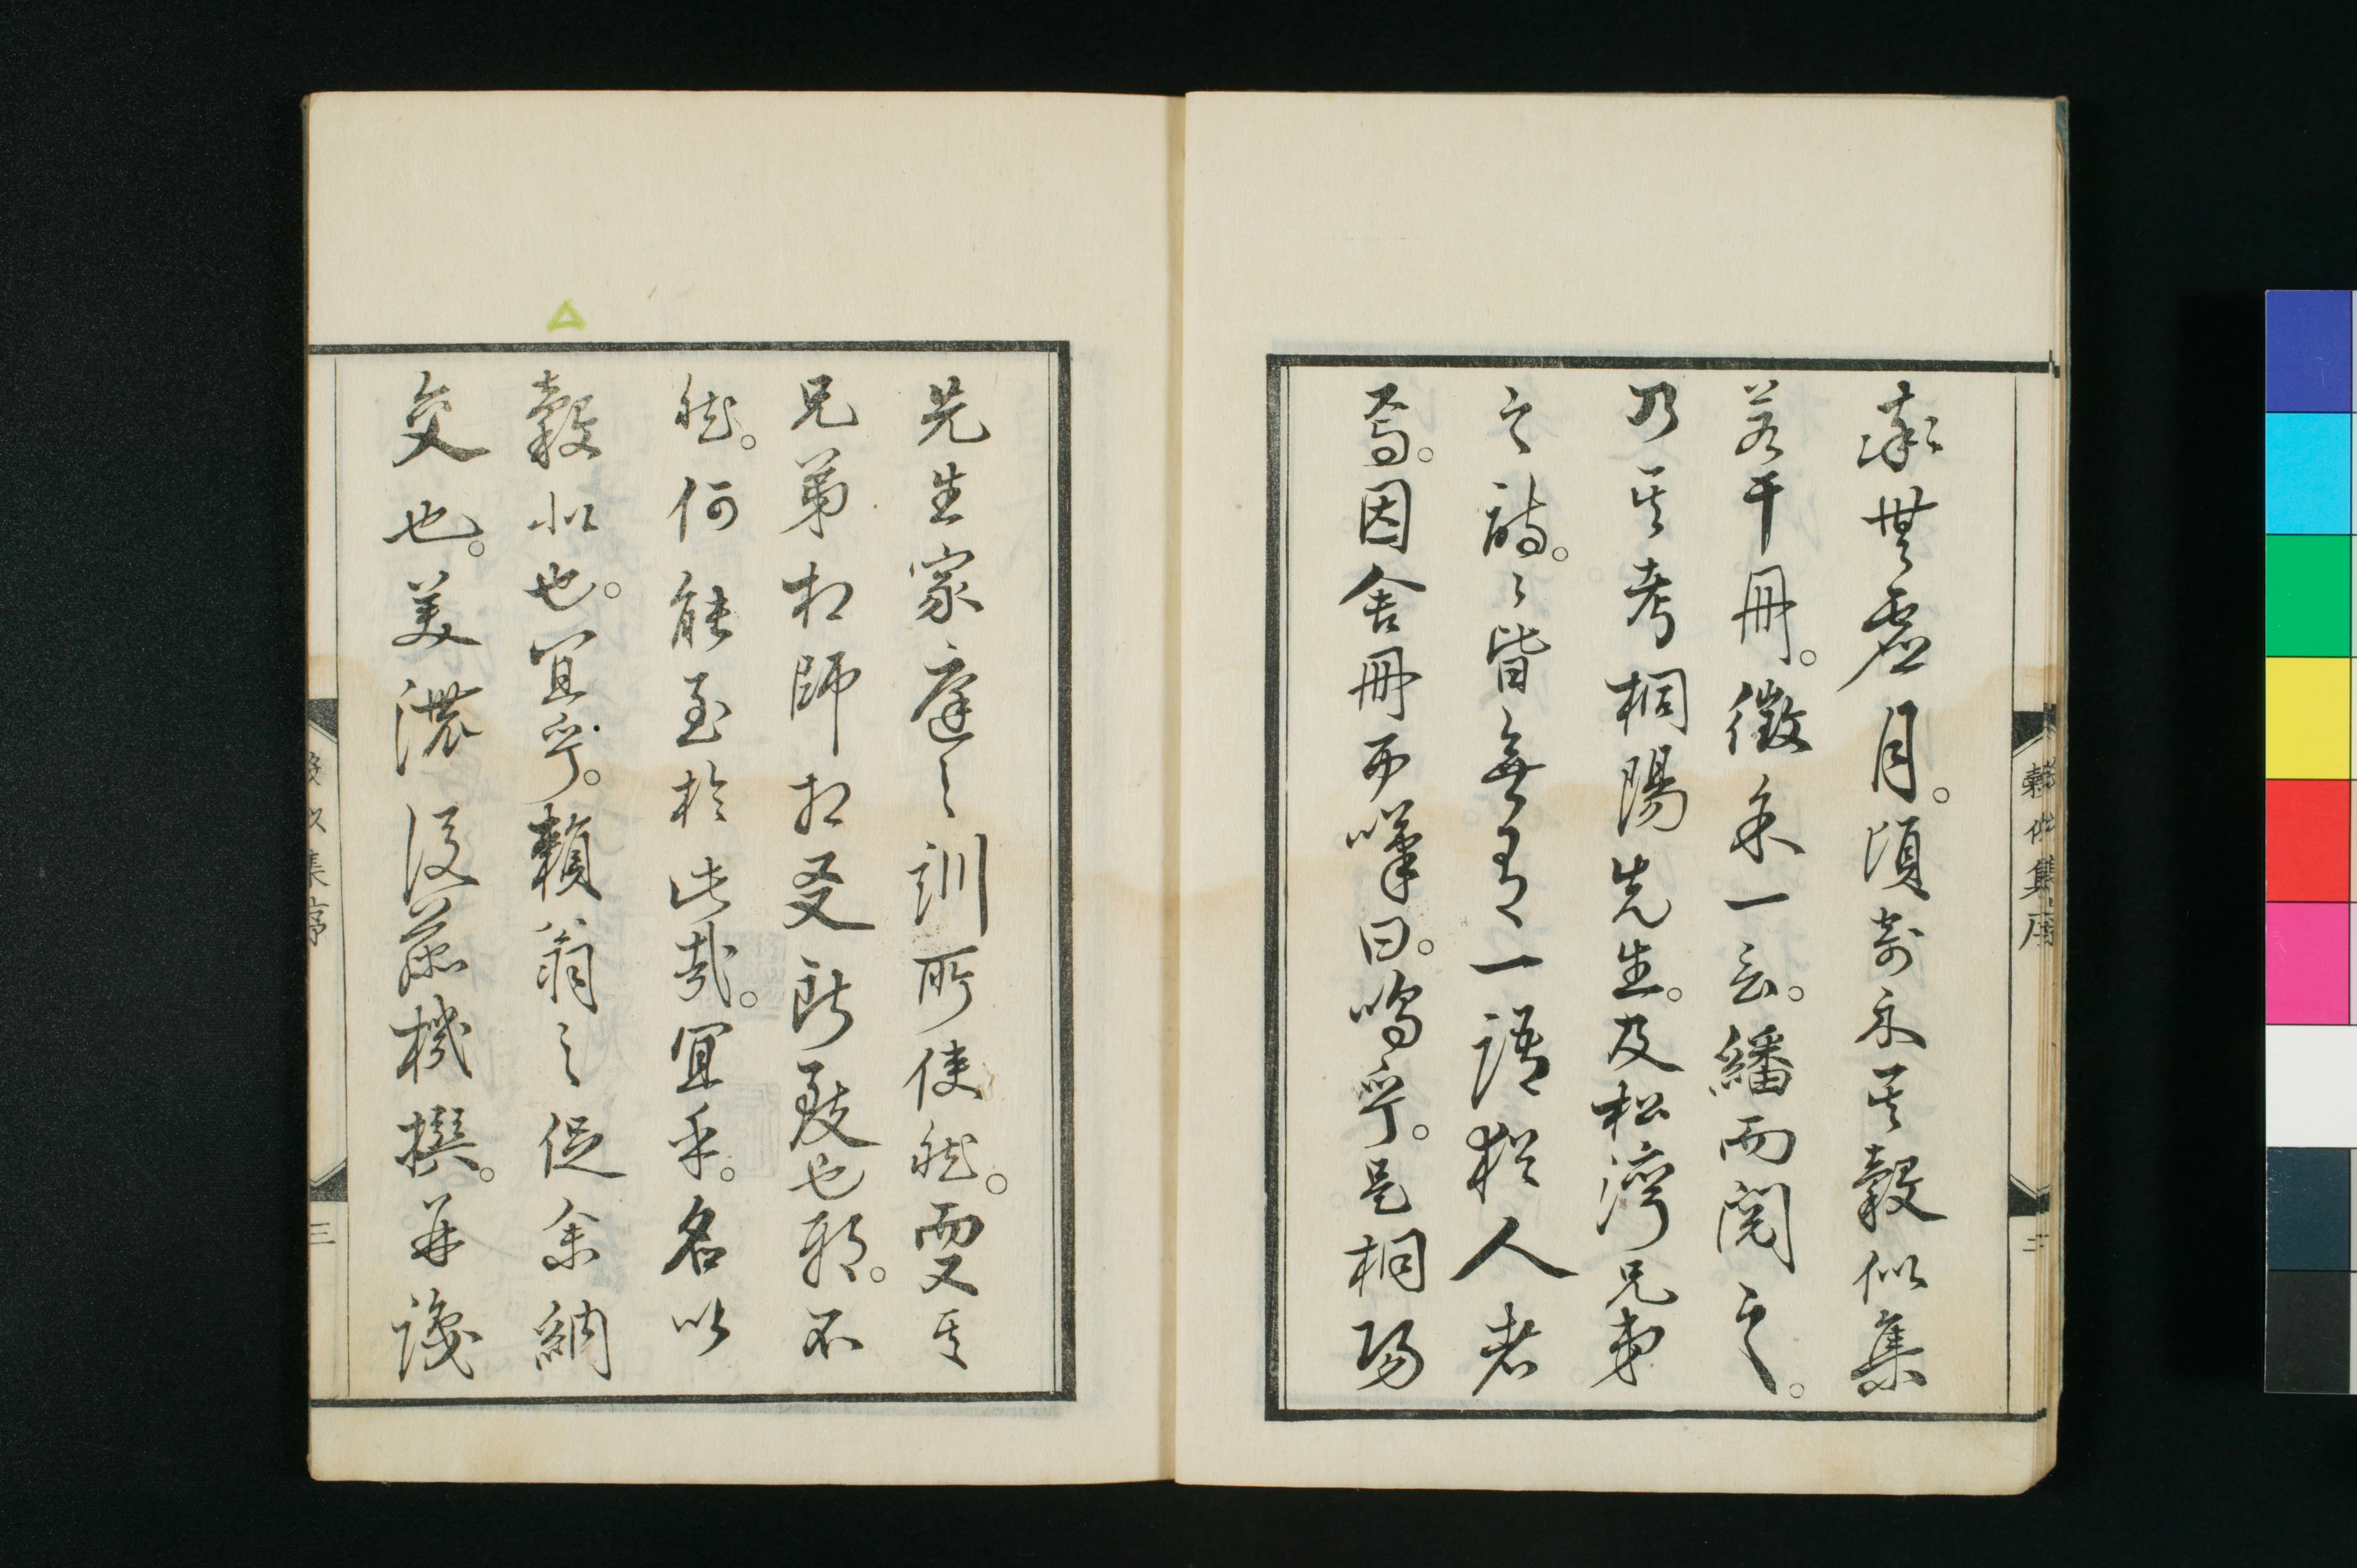 承無虛月。頃寄示其穀似集
若干冊。徵余一言。繙而閱之。
乃其考桐陽先生。及松灣兄弟
之詩。々皆無有一語猶人者
焉。因舍冊而嘆曰。嗚乎。是桐陽
先生家庭之訓所使然。而又其
兄弟相師相友所致也耶。不
然。何能至於此哉。宜乎。名以
穀似也。宜乎。賴翁之促余納
交也。美濃後藤機撰。并識
穀似集序
二
穀似集序
三